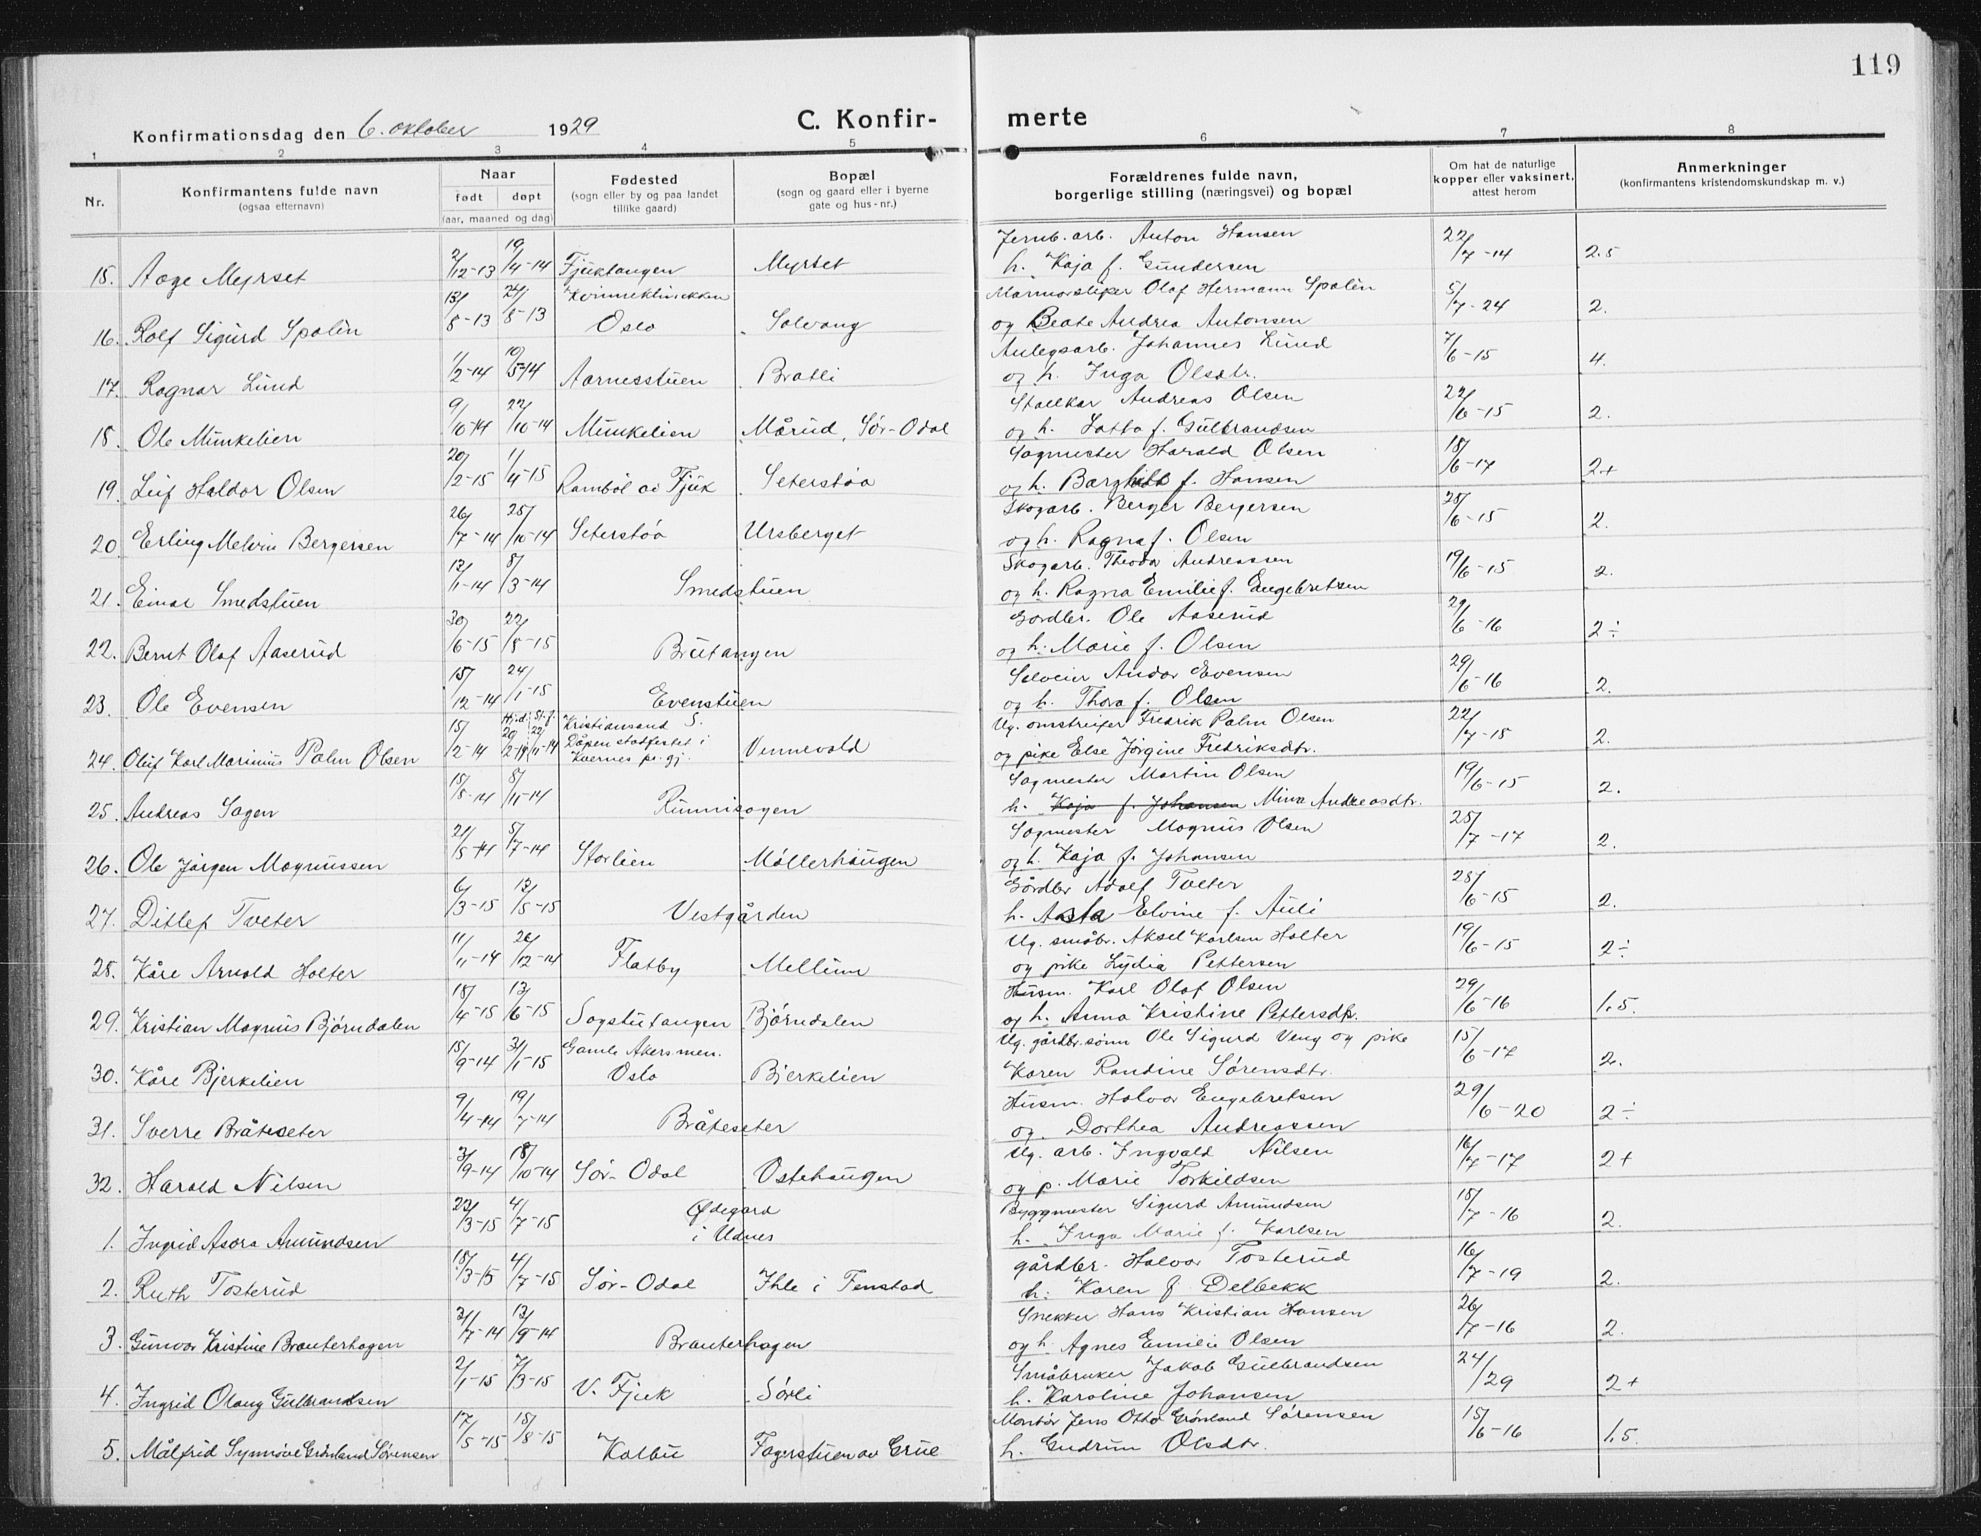 119
Konfirmationsdag den 6. oktober 1929
C. Konfir- merte
1 2 3 4 5 6 7 8
Nr.
Konfirmantens fulde navn
(ogsaa efternavn)
Naar
født døpt
(aar, maaned og dag)
Fødested
(sogn eller by og paa landet
tillike gaard)
Bopæl
(sogn og gaard eller i byerne
gate og hus-nr.)
Forældrenes fulde navn,
borgerlige stilling (næringsvei) og bopæl
Om hat de naturlige
kopper eller vaksinert,
attest herom
Anmerkninger
(konfirmantens kristendomskundskap m. v.)
Jernb. arb. Anton Hansen
15. Aage Myrset 2/12-13 19/4-14 Fjuktangen Myrset h. Kaja f. Gundersen 22/7-14 2.5
Kvinneklinikken Marmorsliper Olaf Hermann Spolén
16. Rolf Sigurd Spolén 13/8-13 24/8-13 Oslo Solvang og Beate Andrea Antonsen 5/7-24 2.
Anlegsarb. Johannes Lund
17. Ragnar Lund 1/2-14 10/5-14 Aarnesstuen Bratli og h. Inga Olsdtr. 7/6-15 4.
Stallkar Andreas Olsen
18. Ole Munkelien 9/10-14 22/10-14 Munkelien Mårud, Sør-Odal og h. Lotta f. Gulbrandsen 22/6-15 2.
Sagmester Harald Olsen
19. Leif Haldor Olsen 20/2-15 1/4-15 Rambøl av Fjuk Seterstøa og h. Borghild f. Hansen 18/6-17 2+
Skogarb. Berger Bergersen
20 Erling Melvin Bergersen 26/7-14 25/10-14 Seterstöa Ursberget og h. Ragna f. Olsen 28/6-15 2.
Skogarb. Theodor Andreassen
21. Einar Smedstuen 12/1-14 8/3-14 Smedstuen og h. Ragna Emilie f. Engebretsen 19/6-15 2.
Gordbr. Ole Aaserud
22. Bernt Olaf Aaserud 30/6-15 22/8-15 Brutangen og h. Marie f. Olsen 29/6-16 2÷
Selveier Andor Evensen
23. Ole Evensen 15/12-14 24/1-15 Evenstuen og h. Thora f. Olsen 29/6-16 2.
Kristiansand S. Ug. omstreifer Fredrik Palm Olsen
Dåpen stadfestet i
24. Oluf Karl Marinius Palm Olsen 15/2-14 Kvernes pr. gj. Vennevold og pike Else Jørgine Fredriksdtr. 22/7-15 2.
Sagmester Martin Olsen
25. Andreas Sagen 15/8-14 8/11-14 Runnisagen h. Kaja f. Johansen Mina Andreasdtr. 19/6-15 2.
Sagmester Magnus Olsen
26. Ole Jørgen Magnussen 21/5-14 5/7-14 Storlien Møllerhaugen og h. Kaja f. Johansen 25/7-17 2.
Gårdbr Adolf Tveter
27. Ditlef Tveter 6/3-15 13/5-15 Vestgården h. Asta Elvine f. Auli 28/6-15 2.
Ug. småbr. Aksel Karlsen Holter
28. Kåre Arnold Holter 11/11-14 26/12-14 Flatby Mellum og pike Lydia Pettersen 19/6-15 2÷
Husm. Karl Olaf Olsen
29. Kristian Magnus Bjørndalen 18/4-15 13/6-15 Sagstutangen Bjørndalen og h. Anna Kristine Pettersdtr. 29/6-16 1.5.
Gamle Akers men. Ug. gårdbr.sønn Ole Sigurd Veng og pike
30. Kåre Bjerkelien 15/9-14 31/1-15 Oslo Bjerkelien Karen Randine Sørensdtr. 15/6-17 2.
Husm. Halvor Engebretsen
31. Sverre Bråteseter 9/4-14 19/7-14 Bråteseter og Dorthea Andreassen 29/6-20 2÷
Ug. arb. Ingvald Nilsen
32. Harald Nilsen 3/9-14 18/10-14 Sør-Odal Ostehaugen og p. Marie Torkildsen 16/7-17 2+
Ødegård Byggmester Sigurd Amundsen
1. Ingrid Asora Amundsen 23/3-15 4/7-15 i Udnes h. Inga Marie f. Karlsen 15/7-16 2.
gårdbr. Halvor Tosterud
2. Ruth Tosterud 18/3-15 4/7-15 Sør-Odal Ihle i Fenstad h. Karen f. Delbekk 16/7-19 2.
Snekker Hans Kristian Hansen
3. Gunvor Kristine Brauterhagen 31/7-14 13/9-14 Brauterhagen og h. Agnes Emilie Olsen 26/7-16 2.
Småbruker Jakob Gulbrandsen
4. Ingrid Olaug Gulbrandsen 2/1-15 7/3-15 V. Fjuk Sørli h. Karoline Johansen 24/29 2+
Montör Jens Otto Grønland Sørensen
5. Målfrid Synnøve Grønland Sørensen 17/5-15 15/8-15 Kolbu Fagerstuen av Grue h. Gudrun Olsdtr. 15/6-16 1.5.